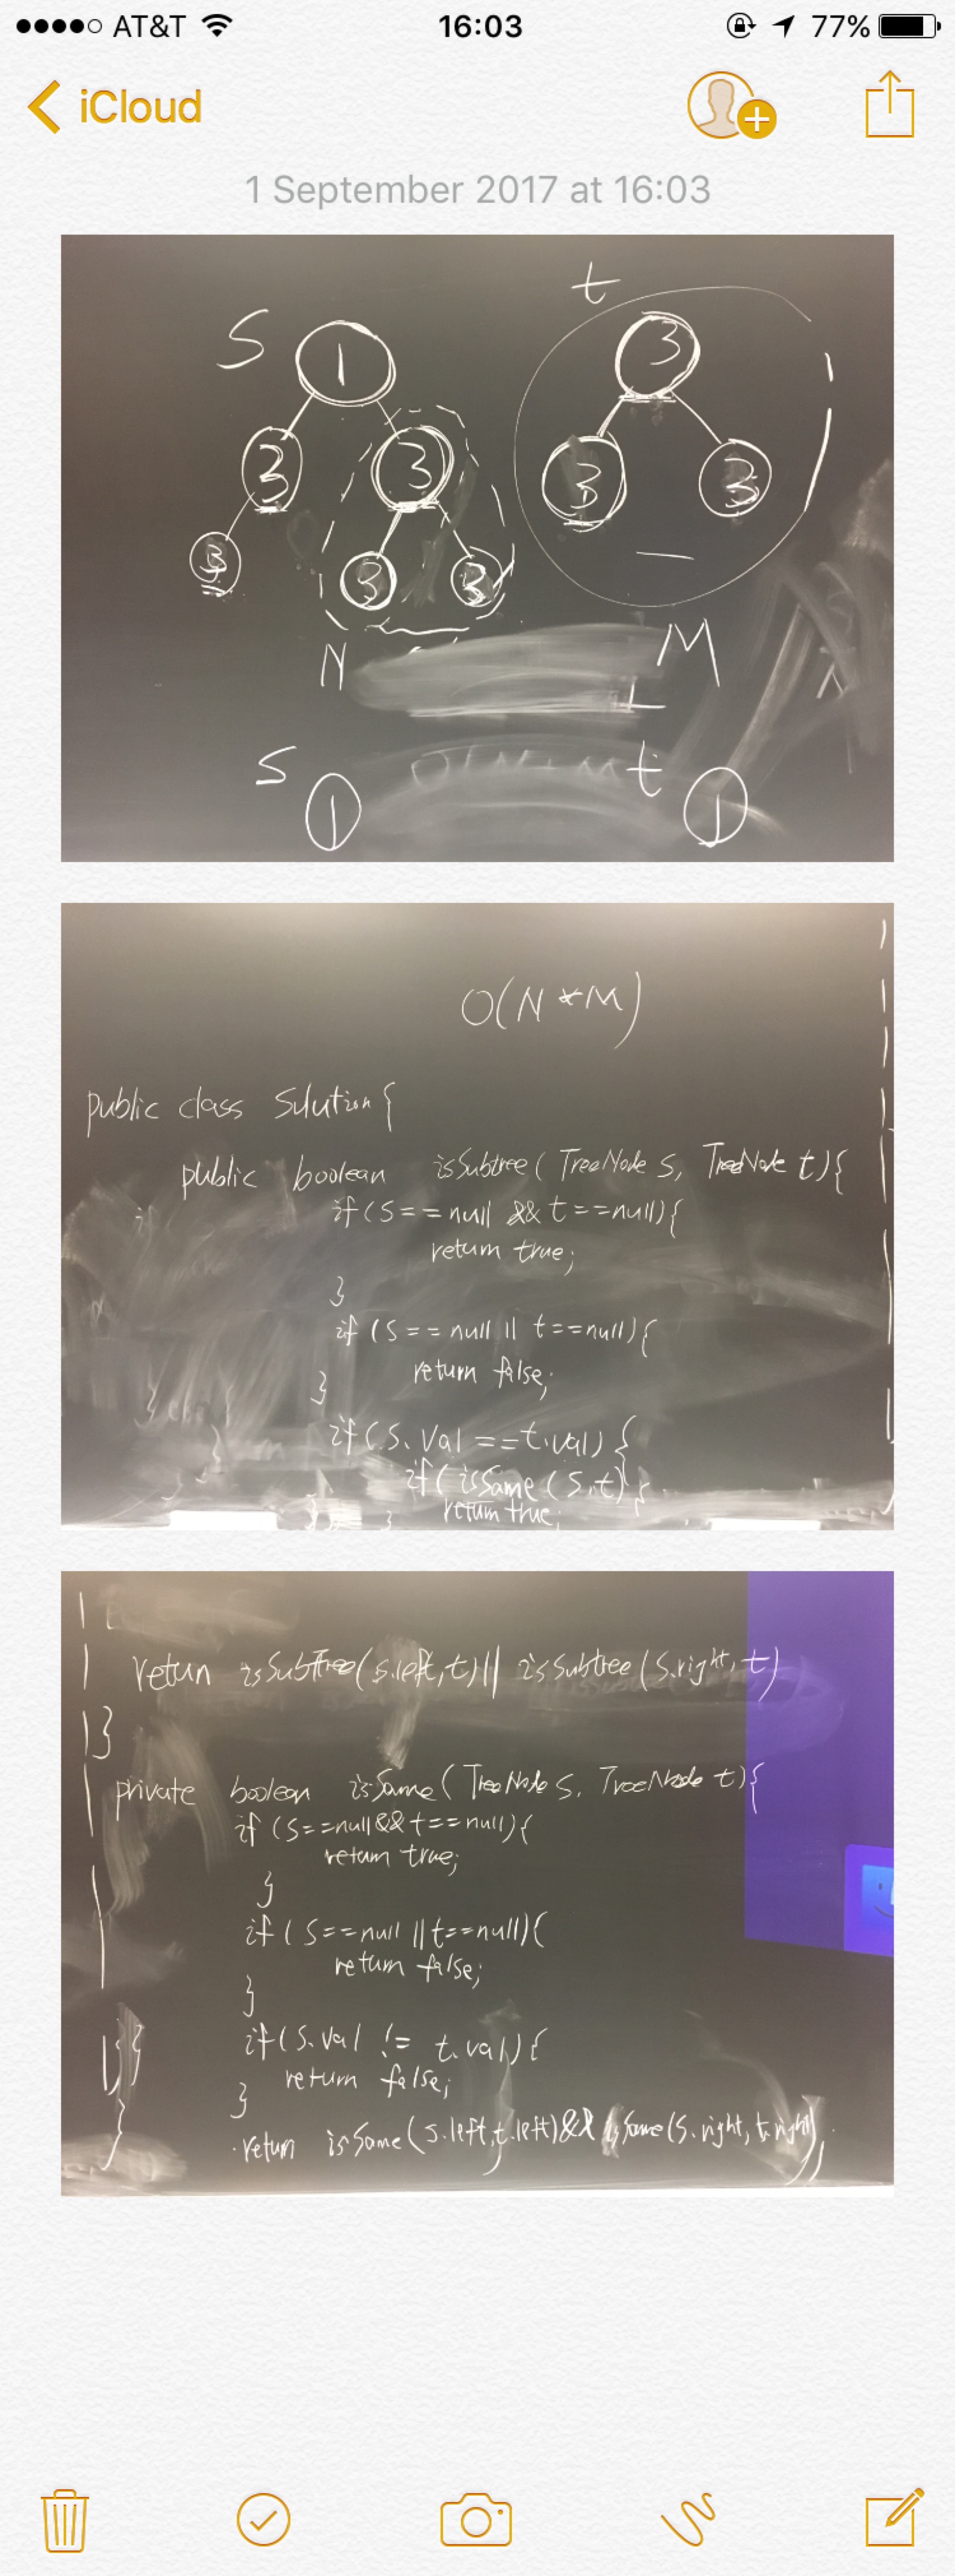 AT&T 16:03 77%
iCloud
1 September 2017 at 16:03
S t
1 3
3 3 3 3
3 3 3
N M
S t
1 1
O(N*M)
public class Solution {
public boolean isSubtree ( TreeNode s, TreeNode t){
if (S == null && t ==null){
return true;
}
if (S == null || t==null){
return false;
}
if(S.val ==t.val) {
if( isSame (S,t) {
return true;
retun isSubTree(s.left,t)|| isSubtree (S.right, t)
}
private boolean isSame( TreeNode s, TreeNode t){
if (S==null&&t==null){
return true;
}
if ( S==null ||t==null){
return false;
}
if(S.val != t.val){
return false;
}
retun isSame(s.left,t.left)&& isSame(S.right, t.right);
}